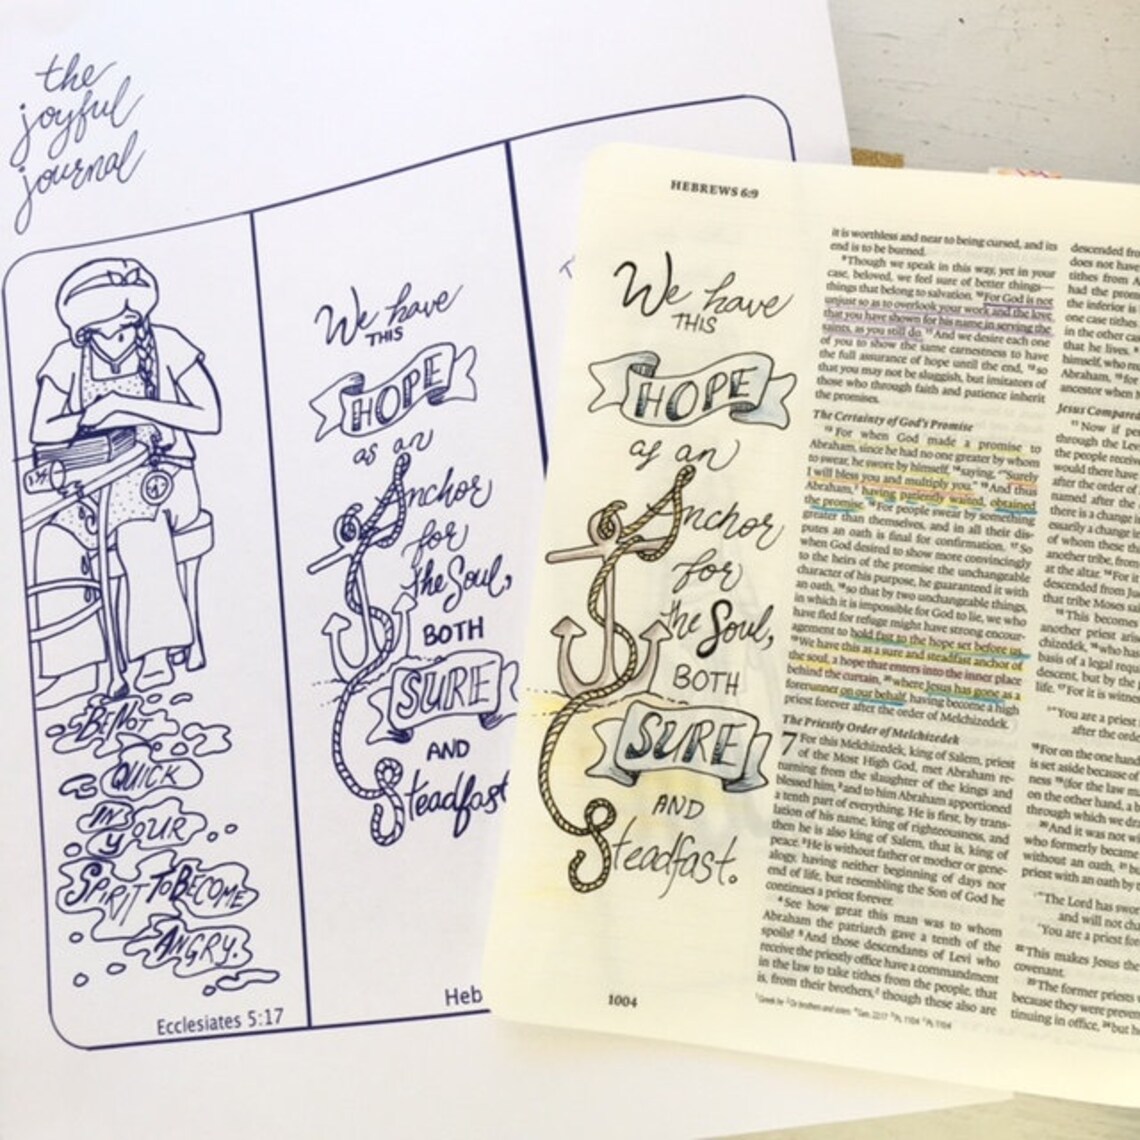 the
joyful
journal
BE NOT
QUICK
IN
YOUR
SPIRIT TO BECOME
ANGRY.
Ecclesiates 5:17
We have
THIS
HOPE
as an
Anchor
for
the Soul,
BOTH
SURE
AND
Steadfast
Heb
HEBREWS 6:9
We have
THIS
HOPE
as an
Anchor
for
the Soul,
BOTH
SURE
AND
Steadfast.
1004
it is worthless and near to being cursed, and its
end is to be burned.
9 Though we speak in this way, yet in your
case, beloved, we feel sure of better things—
things that belong to salvation. 10 For God is not
unjust so as to overlook your work and the love
that you have shown for his name in serving the
saints, as you still do. 11 And we desire each one
of you to show the same earnestness to have
the full assurance of hope until the end, 12 so
that you may not be sluggish, but imitators of
those who through faith and patience inherit
the promises.
The Certainty of God's Promise
13 For when God made a promise to
Abraham, since he had no one greater by whom
to swear, he swore by himself, 14 saying, "Surely
I will bless you and multiply you." 15 And thus
Abraham, having patiently waited, obtained
the promise. 16 For people swear by something
greater than themselves, and in all their dis-
putes an oath is final for confirmation. 17 So
when God desired to show more convincingly
to the heirs of the promise the unchangeable
character of his purpose, he guaranteed it with
an oath, 18 so that by two unchangeable things,
in which it is impossible for God to lie, we who
have fled for refuge might have strong encour-
agement to hold fast to the hope set before us.
19 We have this as a sure and steadfast anchor of
the soul, a hope that enters into the inner place
behind the curtain, 20 where Jesus has gone as a
forerunner on our behalf, having become a high
priest forever after the order of Melchizedek.
The Priestly Order of Melchizedek
7 For this Melchizedek, king of Salem, priest
of the Most High God, met Abraham re-
turning from the slaughter of the kings and
blessed him, 2 and to him Abraham apportioned
a tenth part of everything. He is first, by trans-
lation of his name, king of righteousness, and
then he is also king of Salem, that is, king of
peace. 3 He is without father or mother or gene-
alogy, having neither beginning of days nor
end of life, but resembling the Son of God he
continues a priest forever.
4 See how great this man was to whom
Abraham the patriarch gave a tenth of the
spoils! 5 And those descendants of Levi who
receive the priestly office have a commandment
in the law to take tithes from the people, that
is, from their brothers, though these also are
descended fro
does not have
tithes from A
had the prom
the inferior is
one case tithes
in the other ca
that he lives.
himself, who re
Abraham, for
ancestor when
Jesus Compare
11 Now if per
through the Levi
the people receive
would there have
after the order of
named after the
there is a change i
essarily a change
of whom these th
another tribe, from
at the altar. 14 For it
descended from Ju
that tribe Moses sa
15 This becomes
another priest aris
chizedek, 16 who has
basis of a legal requ
descent, but by the p
life. 17 For it is witnes
"You are a priest
after the orde
18 For on the one hand
is set aside because of
ness 19 (for the law m
on the other hand, a b
through which we dra
20 And it was not wi
who formerly became
without an oath, 21 bu
priest with an oath by t
"The Lord has swor
and will not cha
'You are a priest f
22 This makes Jesus the
covenant.
23 The former priests
because they were preven
tinuing in office, 24 but h